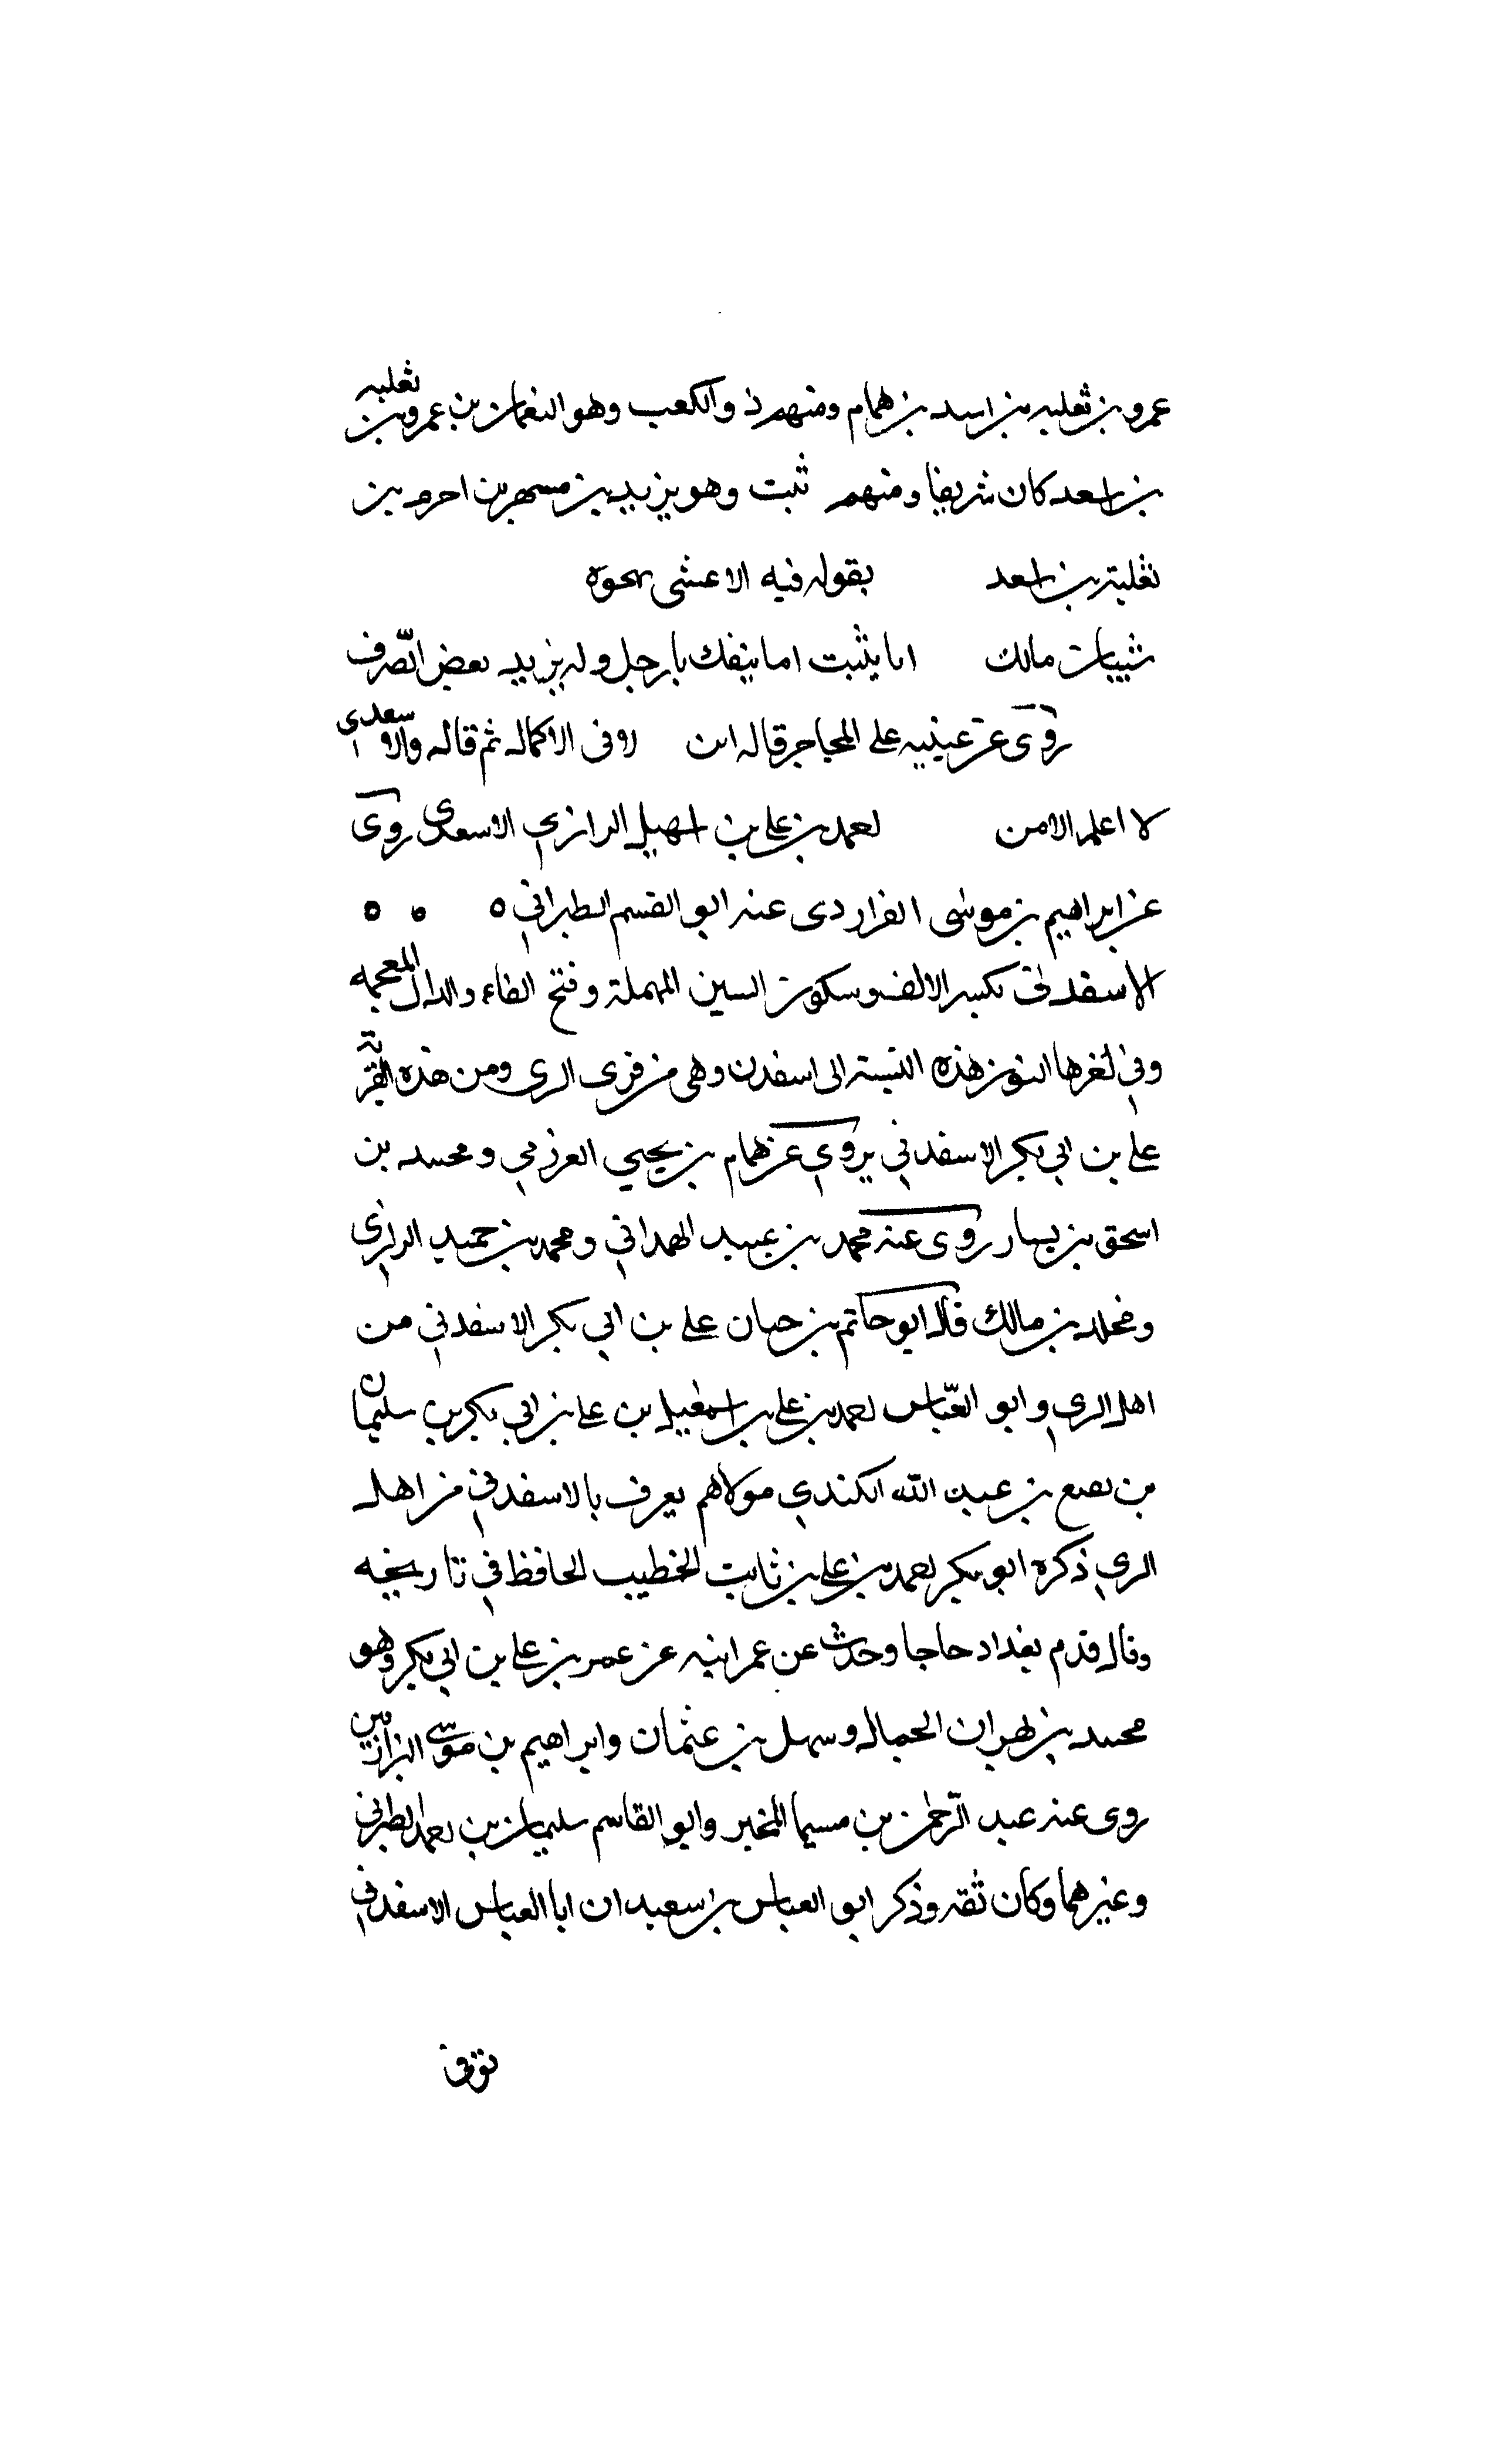 عمرو بن ثعلبه بن اسد بن همام ومنهم ذو الكعب وهو النعمان بن عمرو بن ثعلبه
بن اسعد كان شريفا ومنهم ثبت وهو يزيد بن مسهر بن احرم بن
ثعلبة بن اسعد يقول فيه الاعشى يهجوه
شيبان مالك اما يثبت اما ينفك يا رجل وله يزيد بعض الصرف
روى عن عينيه على المحاجر قاله ابن في الاكمال ثم قال والاسعدى
لا اعلم الا من احمد بن علي بن اسهيل الرازي الاسعدى روى
عن ابراهيم بن موسى الفرا ردى عنه ابو القسم الطبراني ه ه ه
الاسفدنى بكسر الالف وسكون السين المهملة وفتح الفاء والدال المعجمه
وفي اخرها النون هذه النسبة الى اسفدن وهى من قرى الرى ومن هذه القرية
علي بن ابي بكر الاسفدني يروي عن همام بن يحيي العرزمي ومحمد بن
اسحق بن يسار روى عنه محمد بن عبيد الهمداني ومحمد بن حميد الرازى
ومخلد بن مالك قال ابو حاتم بن حبان علي بن ابي بكر الاسفدني من
اهل الري وابو العباس احمد بن علي بن اسمعيل بن علي بن ابي بكر بن سليمان
بن بن عبد الله الكندي مولاهم يعرف بالاسفدني من اهل
الري ذكره ابو بكر احمد بن علي بن ثابت الخطيب الحافظ في تاريخه
وقال قدم بغداد حاجا وحدث عن عم ابيه عن عمر بن علي بن ابي بكر وهو
محمد بن مهران الحمال وسهل بن عثمان وابراهيم بن موسى الرازيين
روى عنه عبد الرحمن بن سيما المخبر وابو القاسم سليمان بن احمد الطبراني
وغيرهما وكان ثقه وذكر ابو العباس بن سعيد ان ابا العباس الاسفدني
توفى